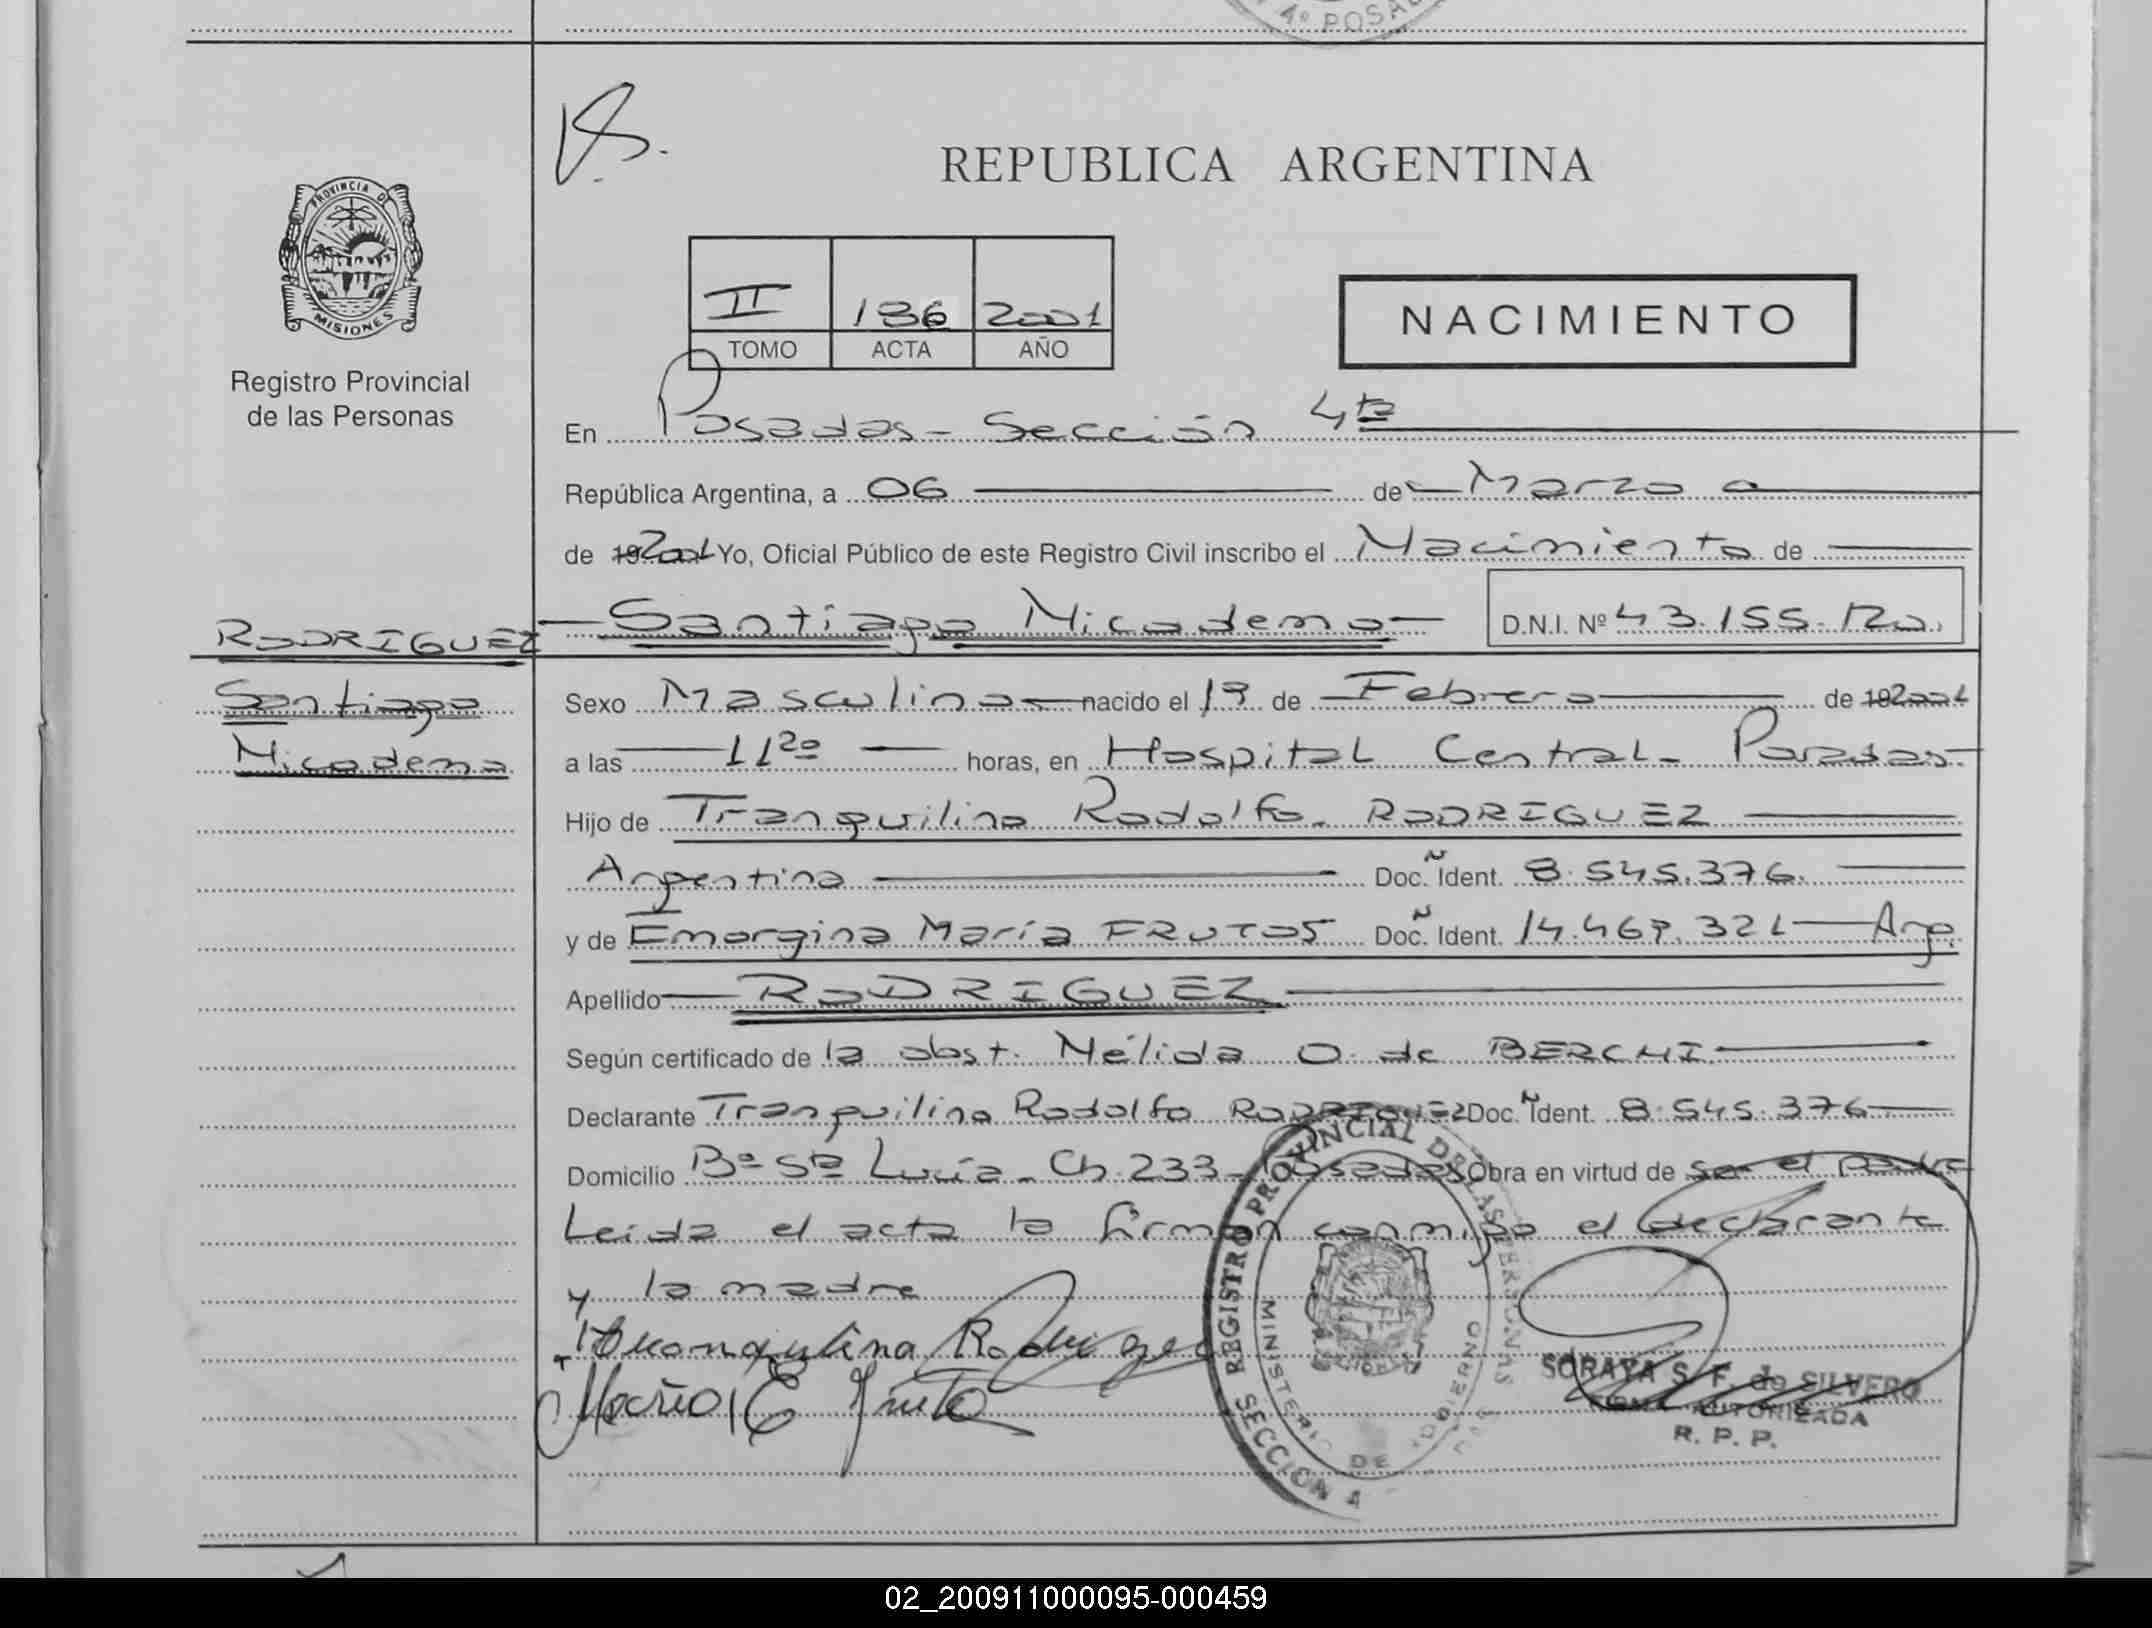 4º POSAD
REPUBLICA ARGENTINA
PROVINCIA DE
MISIONES
Registro Provincial
de las Personas
II 136 2001
TOMO ACTA AÑO
NACIMIENTO
En Posadas - Sección 4ta
República Argentina, a 06 de Marzo
de 19 2001 Yo, Oficial Público de este Registro Civil inscribo el Nacimiento de
RODRIGUEZ Santiago Nicodemo D.N.I. Nº 43.155.120.
Santiago
Nicodemo
Sexo Masculino nacido el 19 de Febrero de 19 2001
a las 11 20 horas, en Hospital Central - Posadas -
Hijo de Tranquilino Rodolfo RODRIGUEZ
Argentino Doc. Ident. 8.545.376.
y de Emorgina María FRUTOS Doc. Ident. 14.469.321 Arg.
Apellido RODRIGUEZ
Según certificado de la obst. Nélida O. de BERCHI
Declarante Tranquilino Rodolfo RODRIGUEZ Doc. Ident. 8.545.376
Domicilio Bº Sta Lucía - Ch. 233 - Posadas Obra en virtud de ser el padre
Leida el acta la firman conmigo el declarante
y la madre
REGISTRO PROVINCIAL DE LAS PERSONAS
SECCION 4
MINISTERIO DE GOBIERNO
SORAYA S. F. de SILVERO
FIRMA AUTORIZADA
R. P. P.
02_200911000095-000459